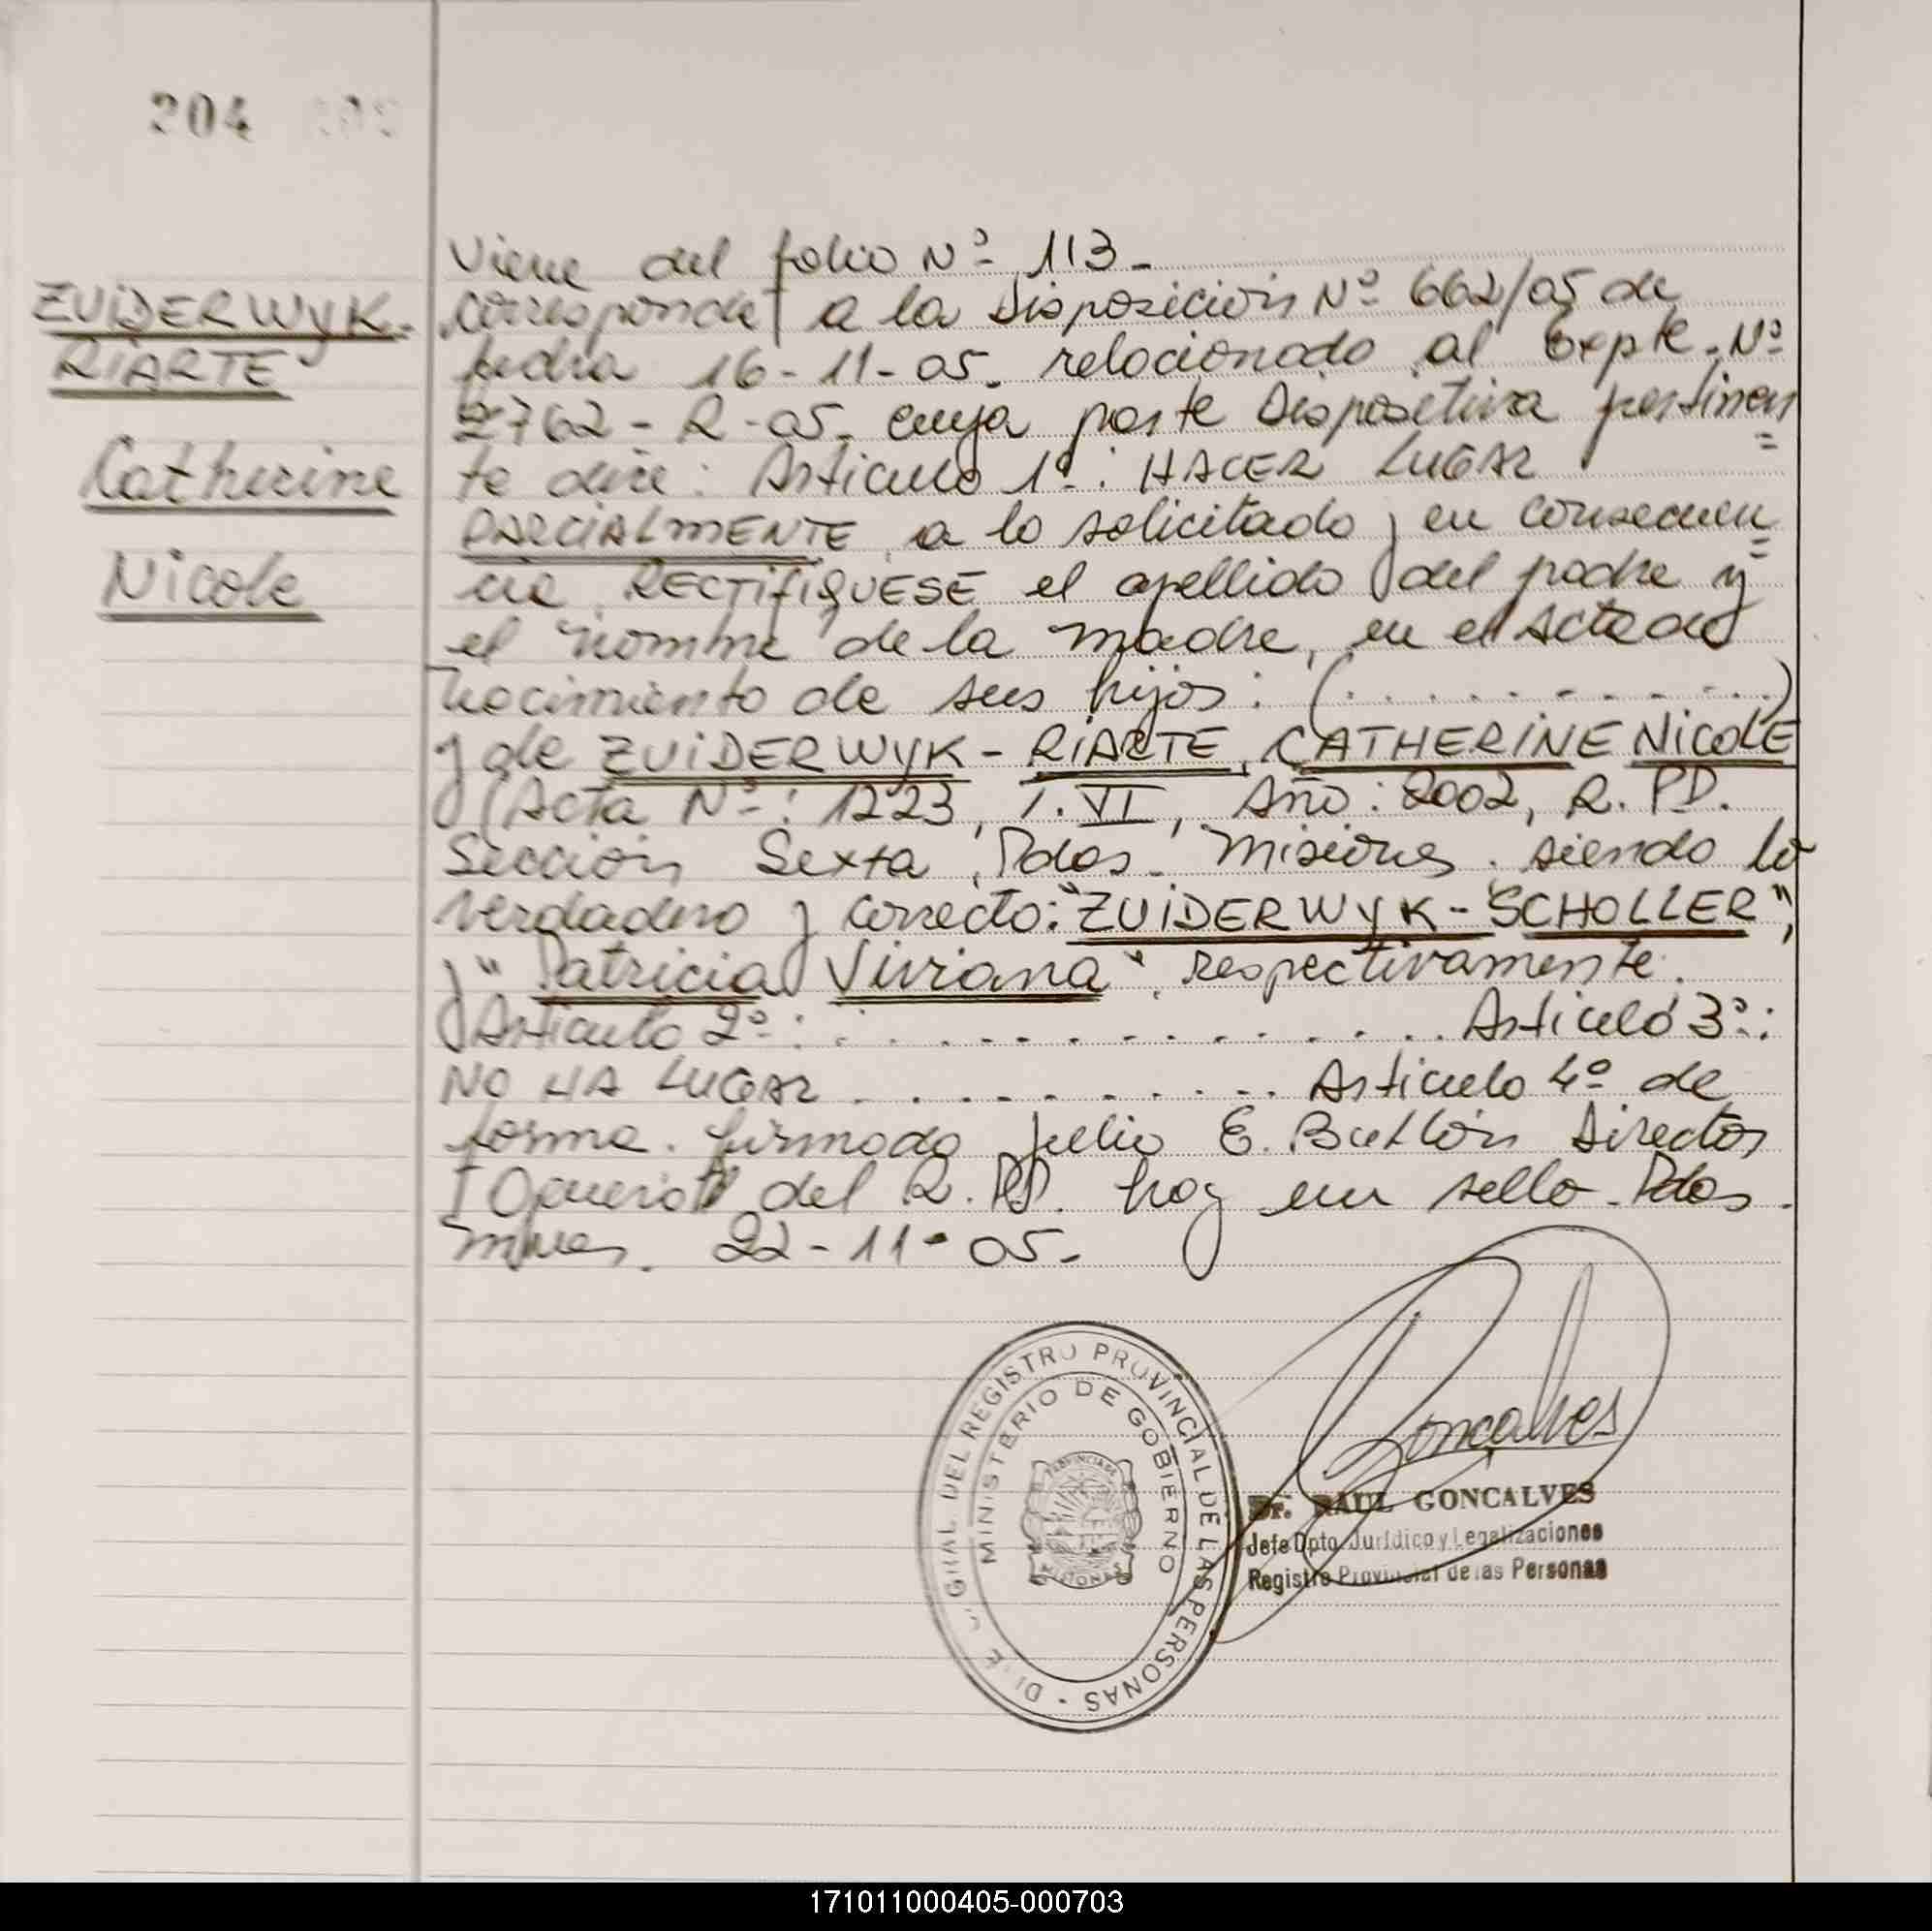 204
ZUIDERWYK-
RIARTE
Catherine
Nicole
Viene del folio Nº 113-
corresponde a la Disposición Nº 662/05 de
fecha 16-11-05. relacionado al Expte. Nº
2762-R-05. cuya parte Dispositiva pertinen
te dice: Artículo 1º: HACER LUGAR
PARCIALMENTE a lo solicitado y en consecuen
cia RECTIFIQUESE el apellido del padre y
el nombre de la madre, en el Acta de
nacimiento de sus hijos: (...........)
y de ZUIDERWYK-RIARTE, CATHERINE NICOLE
(Acta Nº: 1223, T. VI, Año: 2002, R. PP.
Sección Sexta, Pdas. Misiones. siendo lo
verdadero y correcto: "ZUIDERWYK-SCHOLLER",
y "Patricia Viviana", respectivamente.
Artículo 2º: ............ Artículo 3º:
NO HA LUGAR .......... Artículo 4º de
forma. firmado Julio E. Director
General del R. PP. hay un sello. Pdas.
Mnes. 22-11-05.
DIREC. GRAL. DEL REGISTRO PROVINCIAL DE LAS PERSONAS -
MINISTERIO DE GOBIERNO
PROVINCIA DE
MISIONES
Goncalves
Dr. RAUL GONCALVES
Jefe Dpto. Jurídico y Legalizaciones
Registro Provincial de las Personas
171011000405-000703